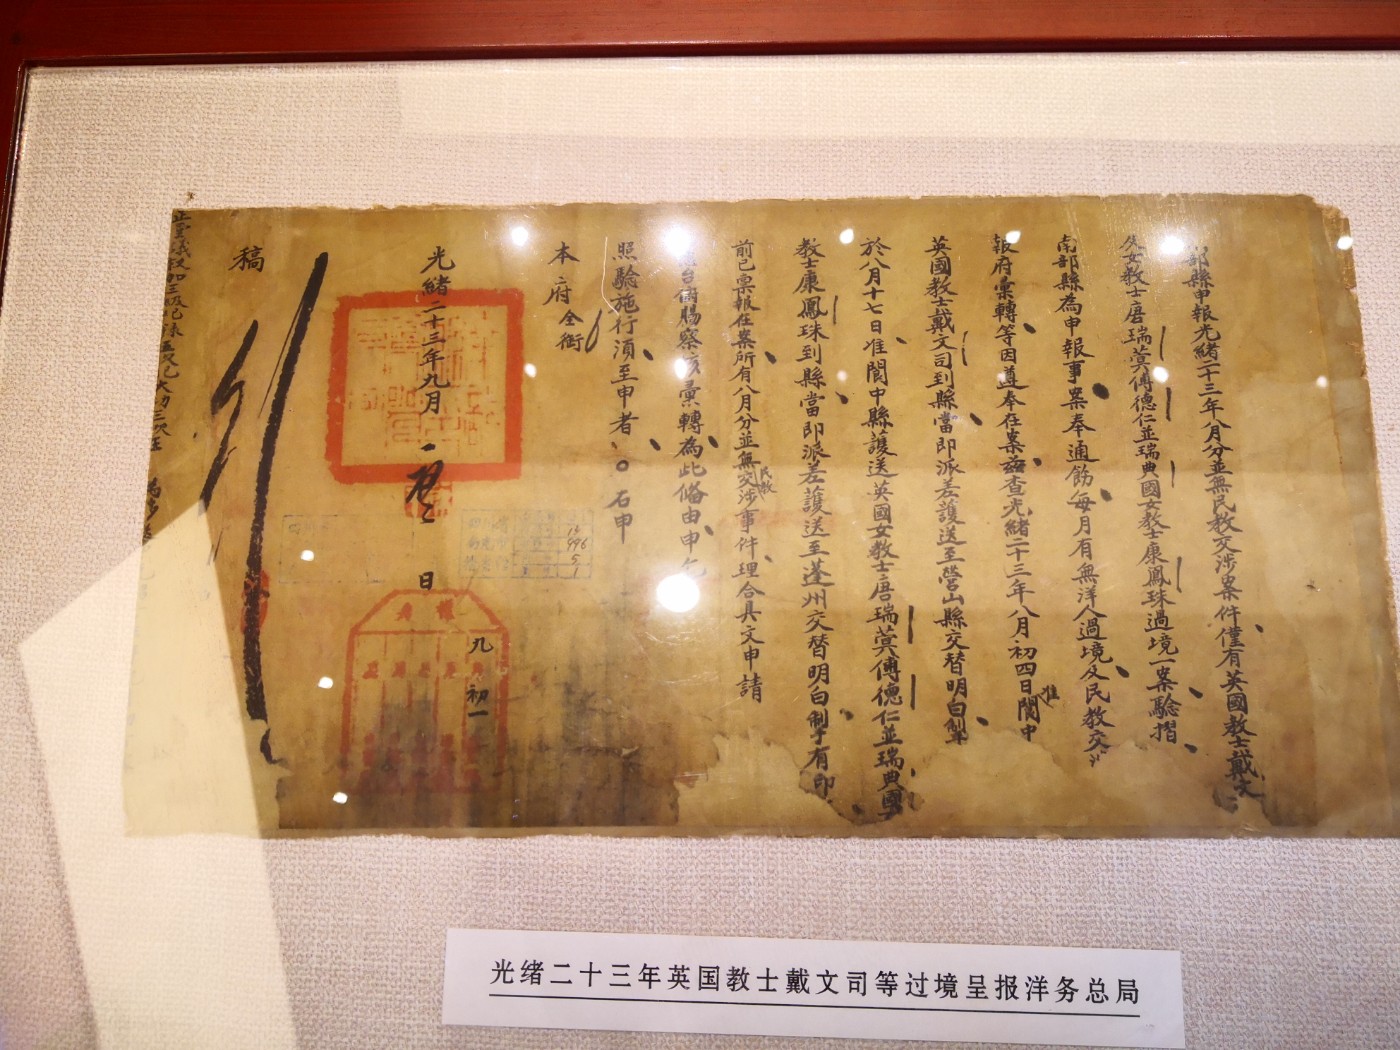 部縣申報光緒二十三年八月分並無民教交涉案件僅有英國教士戴文
女教士唐瑞蓂傅德仁並瑞典國女教士康鳳珠過境一案驗摺
南部縣為申報事案奉通飭每月有無洋人過境及民教交
報府彙轉等因遵奉在案茲查光緒二十三年八月初四日准閬中
英國教士戴文司到縣當即派差護送至營山縣交替明白掣
於八月十七日准閬中縣護送英國女教士唐瑞蓂傅德仁並瑞典國
教士康鳳珠到縣當即派差護送至蓬州交替明白掣有印
前已稟報在案所有八月分並無民教交涉事件理合具文申請
台俯賜察核彙轉為此備由申乞
照驗施行須至申者
右申
本府全銜
光緒二十三年九月
日
九
初一
稿
光绪二十三年英国教士戴文司等过境呈报洋务总局